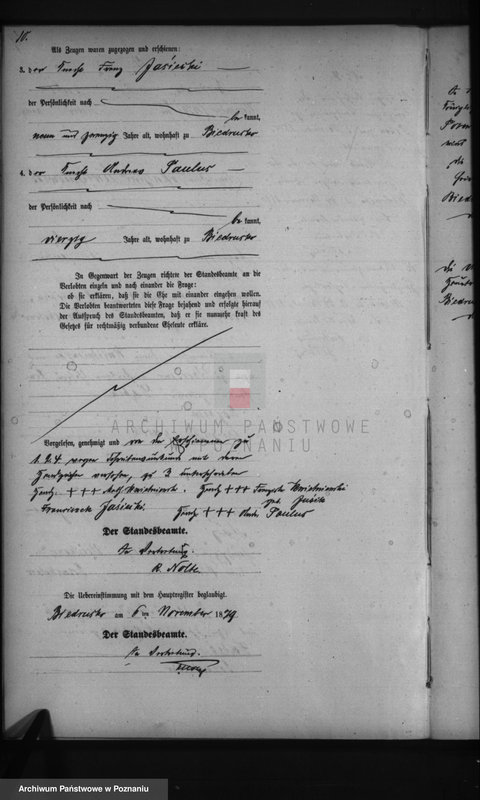 10.
Als Zeugen waren zugezogen und erschienen:
3. der Knecht Franz Jasieski
der Persönlichkeit nach
be kannt,
neun und zwanzig Jahre alt, wohnhaft zu Biedrusko
4. der Knecht Andreas Paulus
der Persönlichkeit nach
be kannt,
vierzig Jahre alt, wohnhaft zu Biedrusko
In Gegenwart der Zeugen richtete der Standesbeamte an die
Verlobten einzeln und nach einander die Frage:
ob sie erklären, daß sie die Ehe mit einander eingehen wollen.
Die Verlobten beantworteten diese Frage bejahend und erfolgte hierauf
der Ausspruch des Standesbeamten, daß er sie nunmehr kraft des
Gesetzes für rechtmäßig verbundene Eheleute erkläre.
ARCHIWUM PAŃSTWOWE
W POZNANIU
Vorgelesen, genehmigt und von den Erschienenen zu
1. 2. 4. wegen Schreibensunkunde mit ihrem
Handzeichen versehen, zu 3 unterschrieben
Handz. +++ Kwiatniewski. Handz. +++ Kwiatniewski
geb.
Franciszek Jasieski. Handz. +++ Andr. Paulus
Der Standesbeamte.
In Vertretung.
R. Nolte.
Die Uebereinstimmung mit dem Hauptregister beglaubigt.
Biedrusko am 6 ten November 1879
Der Standesbeamte.
In Vertretung.
Biedrusko
Archiwum Państwowe w Poznaniu